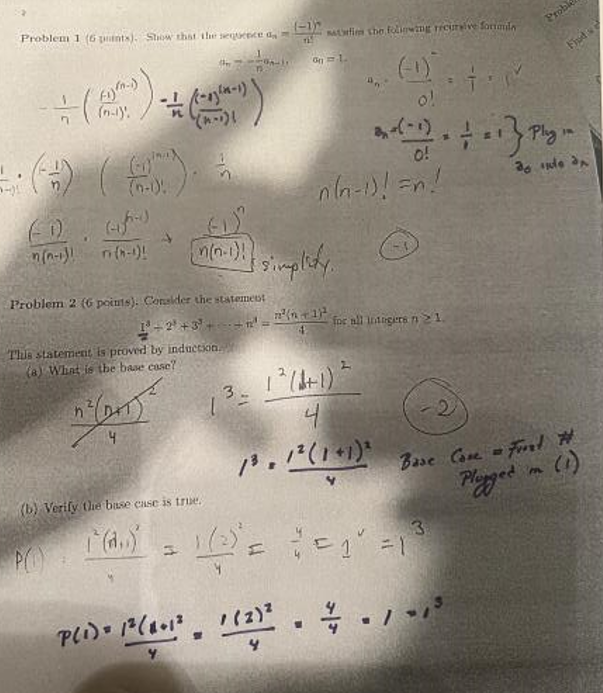 2
Problem
Find a
Problem 1 (6 points). Show that the sequence aₙ = (-1)ⁿ/n! satisfies the following recursive formula
aₙ = -1/n aₙ₋₁, a₀ = 1.
-1/n ((-1)^(n-1)/(n-1)!) -1/n ((-1)^(n-1)/(n-1)!)
aₙ = (-1)⁰/0! = 1/1 = 1 ✓
aₙ = (-1)/0! = 1/1 = 1 } Plug in
a₀ into aₙ
(-1/n) ((-1)^(n-1)/(n-1)!) · 1/n
n(n-1)! = n!
(-1)/n(n-1)! · (-1)^(n-1)/n(n-1)! → (-1)ⁿ/n(n-1)! simplify.
-1
Problem 2 (6 points). Consider the statement
1³ + 2³ + 3³ + ··· + n³ = n²(n + 1)²/4 for all integers n ≥ 1.
This statement is proved by induction.
(a) What is the base case?
n²(n+1)²/4 1³ = 1²(1+1)²/4
-2
1³ = 1²(1+1)²/4 Base Case = First #
Plugged in (1)
(b) Verify the base case is true.
P(1) = 1²(1+1)²/4 = 1(2)²/4 = 4/4 = 1 ✓ = 1³
P(1) = 1²(1+1²/4 = 1(2)²/4 = 4/4 = 1 = 1³